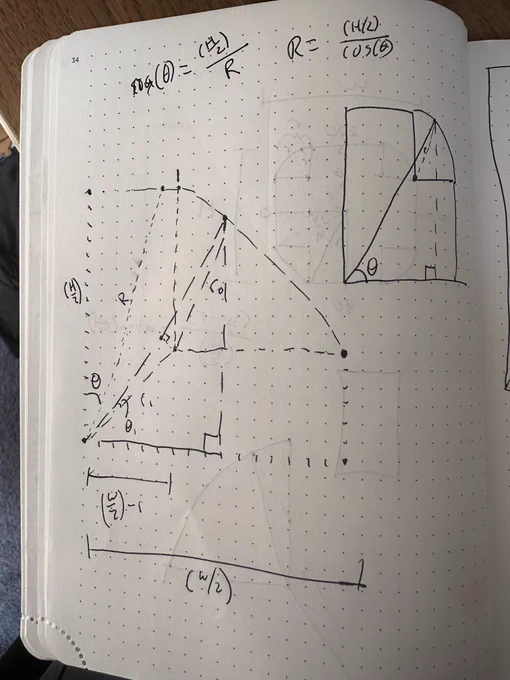 34
cos(θ) = (H/2) / R
R = (H/2) / cos(θ)
θ
(H/2)
R
r0
θ
r1
θ1
(W/2)-r
(W/2)